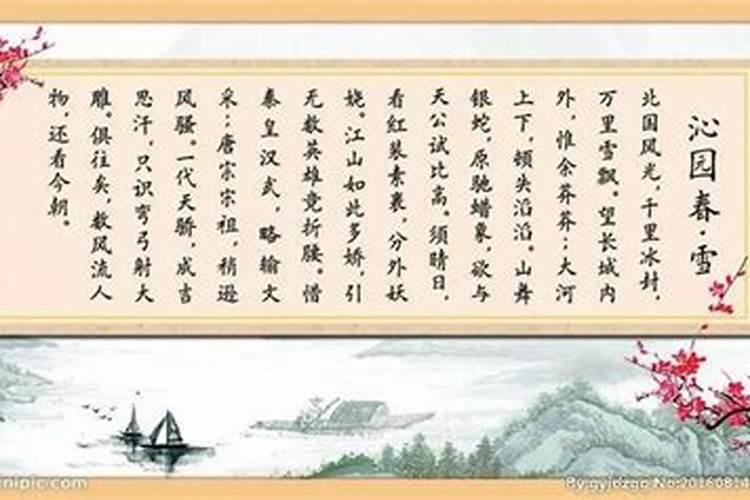 沁园春·雪
北国风光，千里冰封，
万里雪飘。望长城内
外，惟余莽莽；大河
上下，顿失滔滔。山舞
银蛇，原驰蜡象，欲与
天公试比高。须晴日，
看红装素裹，分外妖
娆。江山如此多娇，引
无数英雄竞折腰。惜
秦皇汉武，略输文
采；唐宗宋祖，稍逊
风骚。一代天骄，成吉
思汗，只识弯弓射大
雕。俱往矣，数风流人
物，还看今朝。
nipic.com
No:20160814